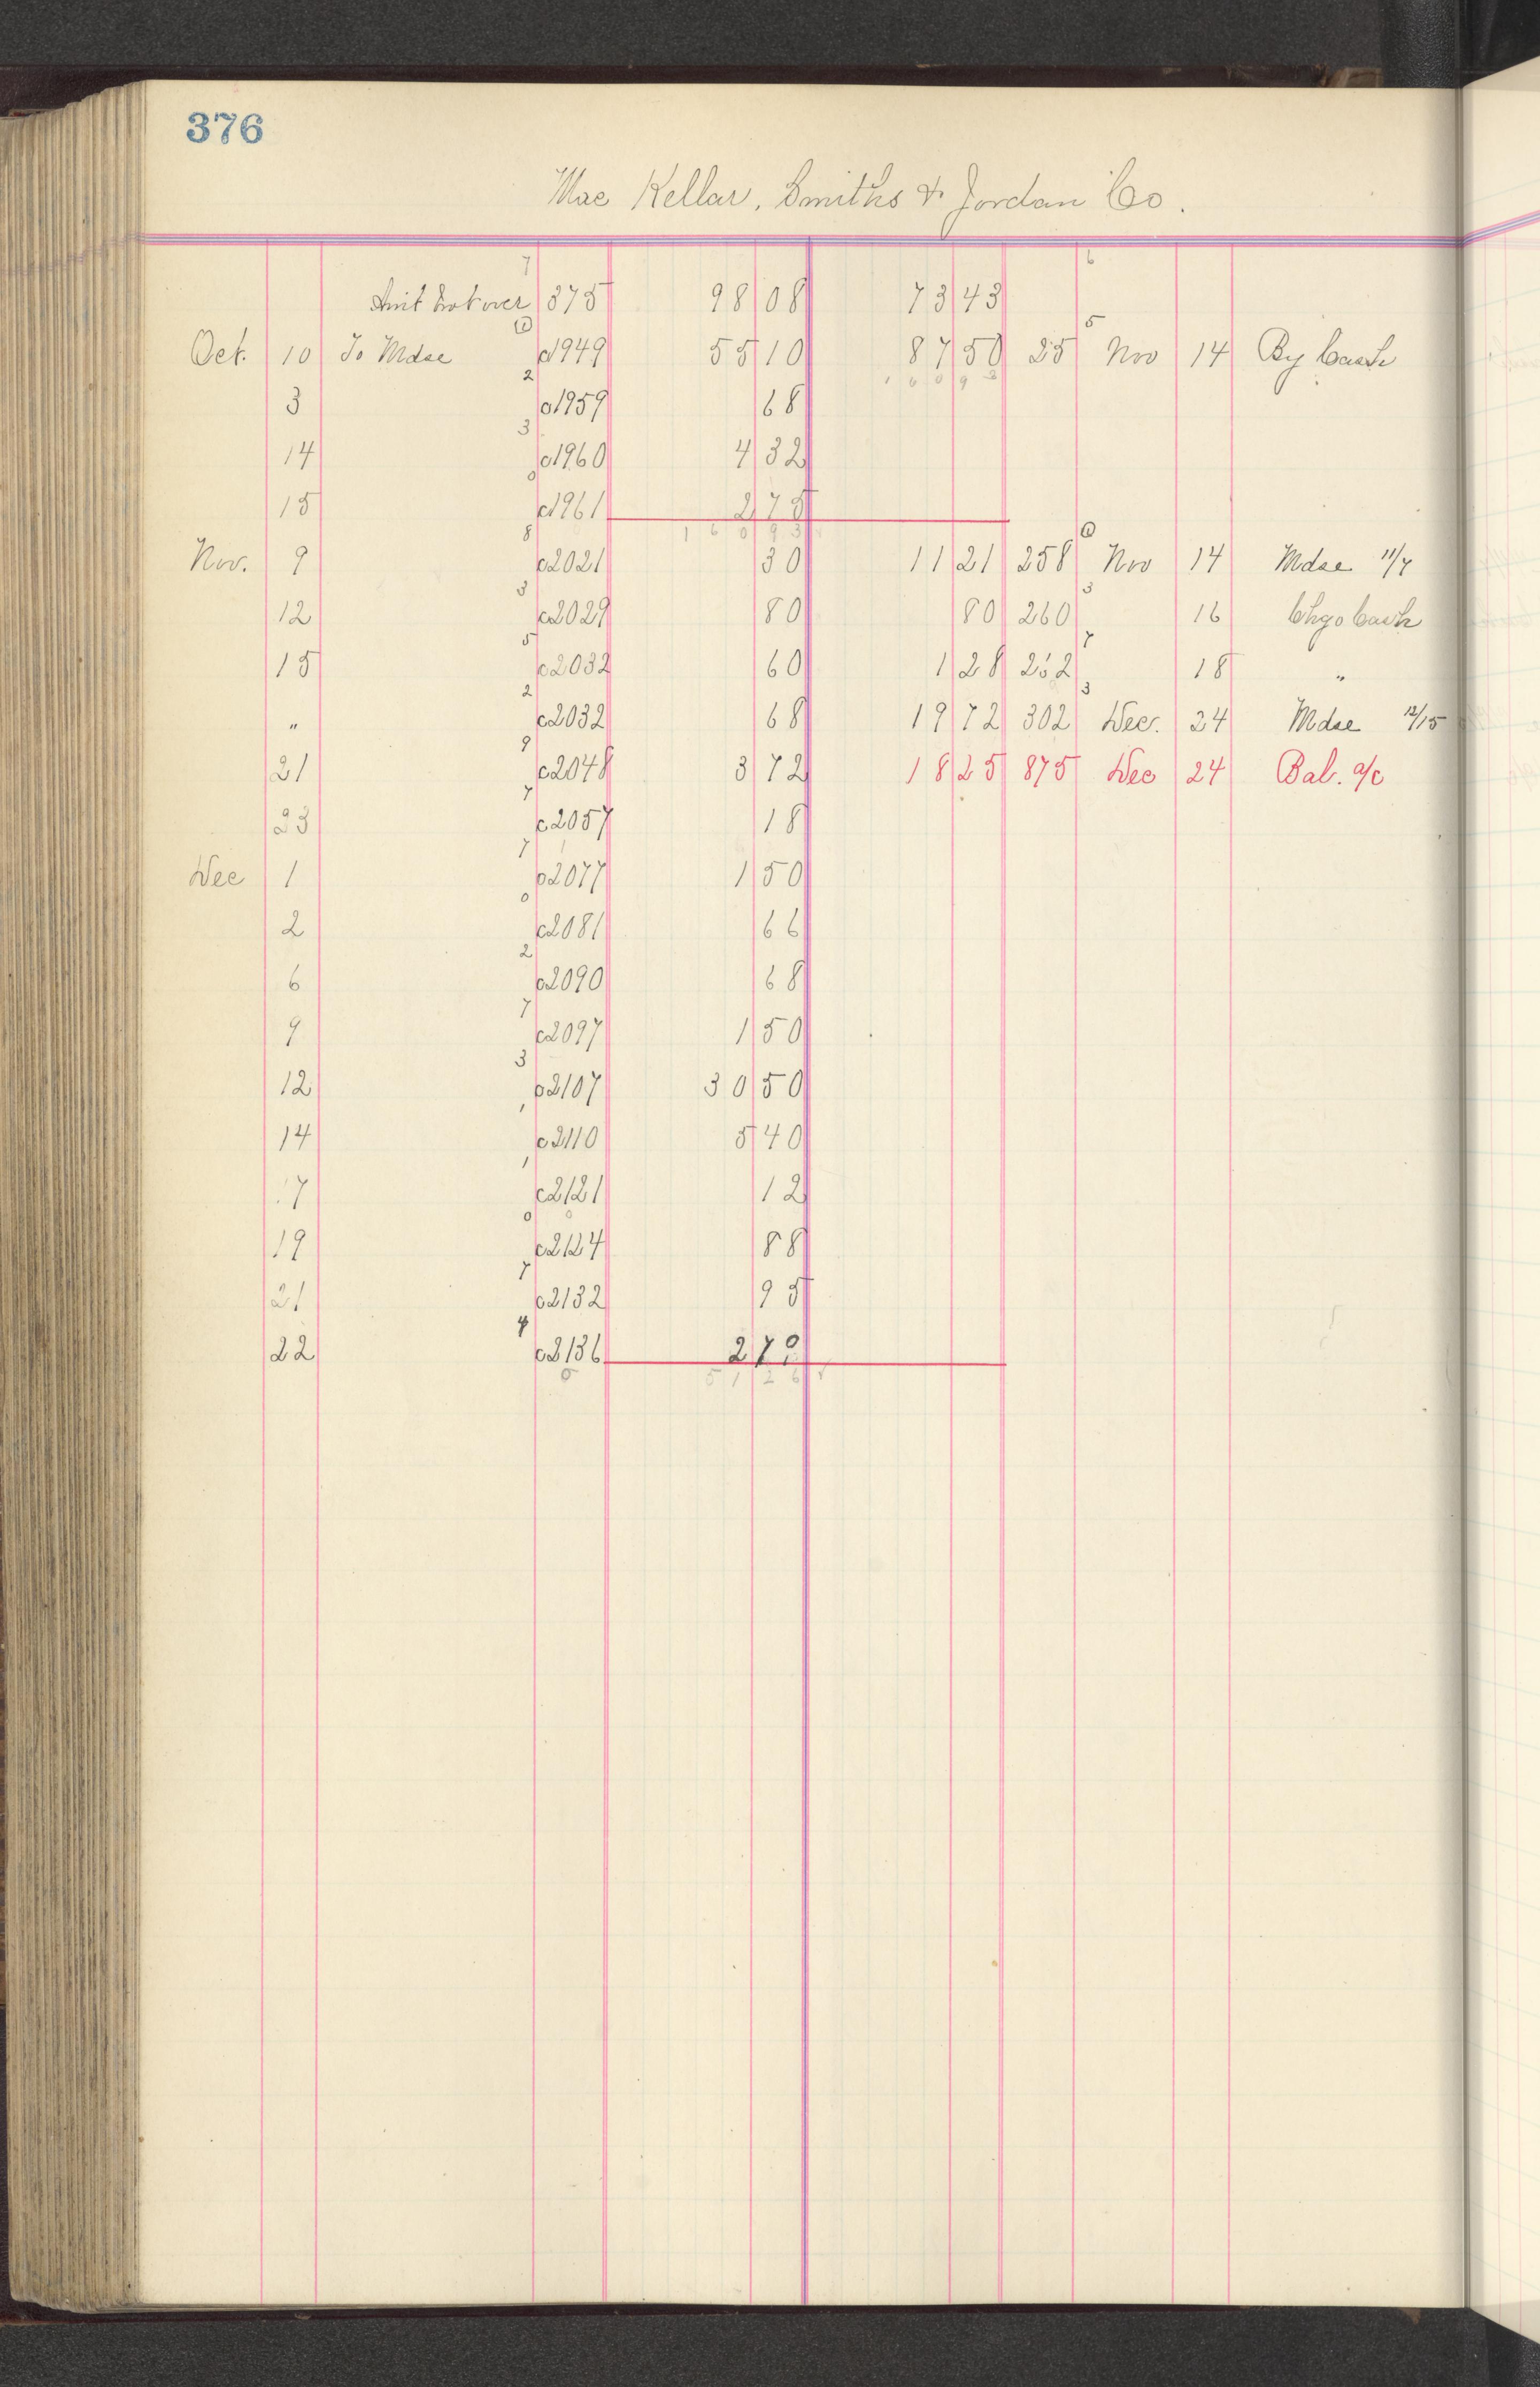 376
Mac Kellar, Smiths & Jordan Co.
7 6
Amt brot over 375 98 08 73 43
Oct. 10 To Mdse 1 c1949 55 10 87 50 25 5 Nov 14 By Cash
160 93
3 2 c1959 68
14 3 c1960 4 32
15 0 c1961 2 75
160 93
Nov. 9 8 c2021 30 11 21 258 1 Nov 14 Mdse 11/7
12 3 c2029 80 80 260 3 16 Chgo Cash
15 5 c2032 60 1 28 262 7 18 "
" 2 c2032 68 19 72 302 3 Dec. 24 Mdse 12/15
21 9 c2048 3 72 18 25 875 Dec 24 Bal. a/c
23 7 c2057 18
Dec 1 7 c2077 1 50
2 0 c2081 66
6 2 c2090 68
9 7 c2097 1 50
12 3 c2107 30 50
14 1 c2110 5 40
17 1 c2121 12
19 0 c2124 88
21 7 c2132 95
22 c2136 2 79
51 26